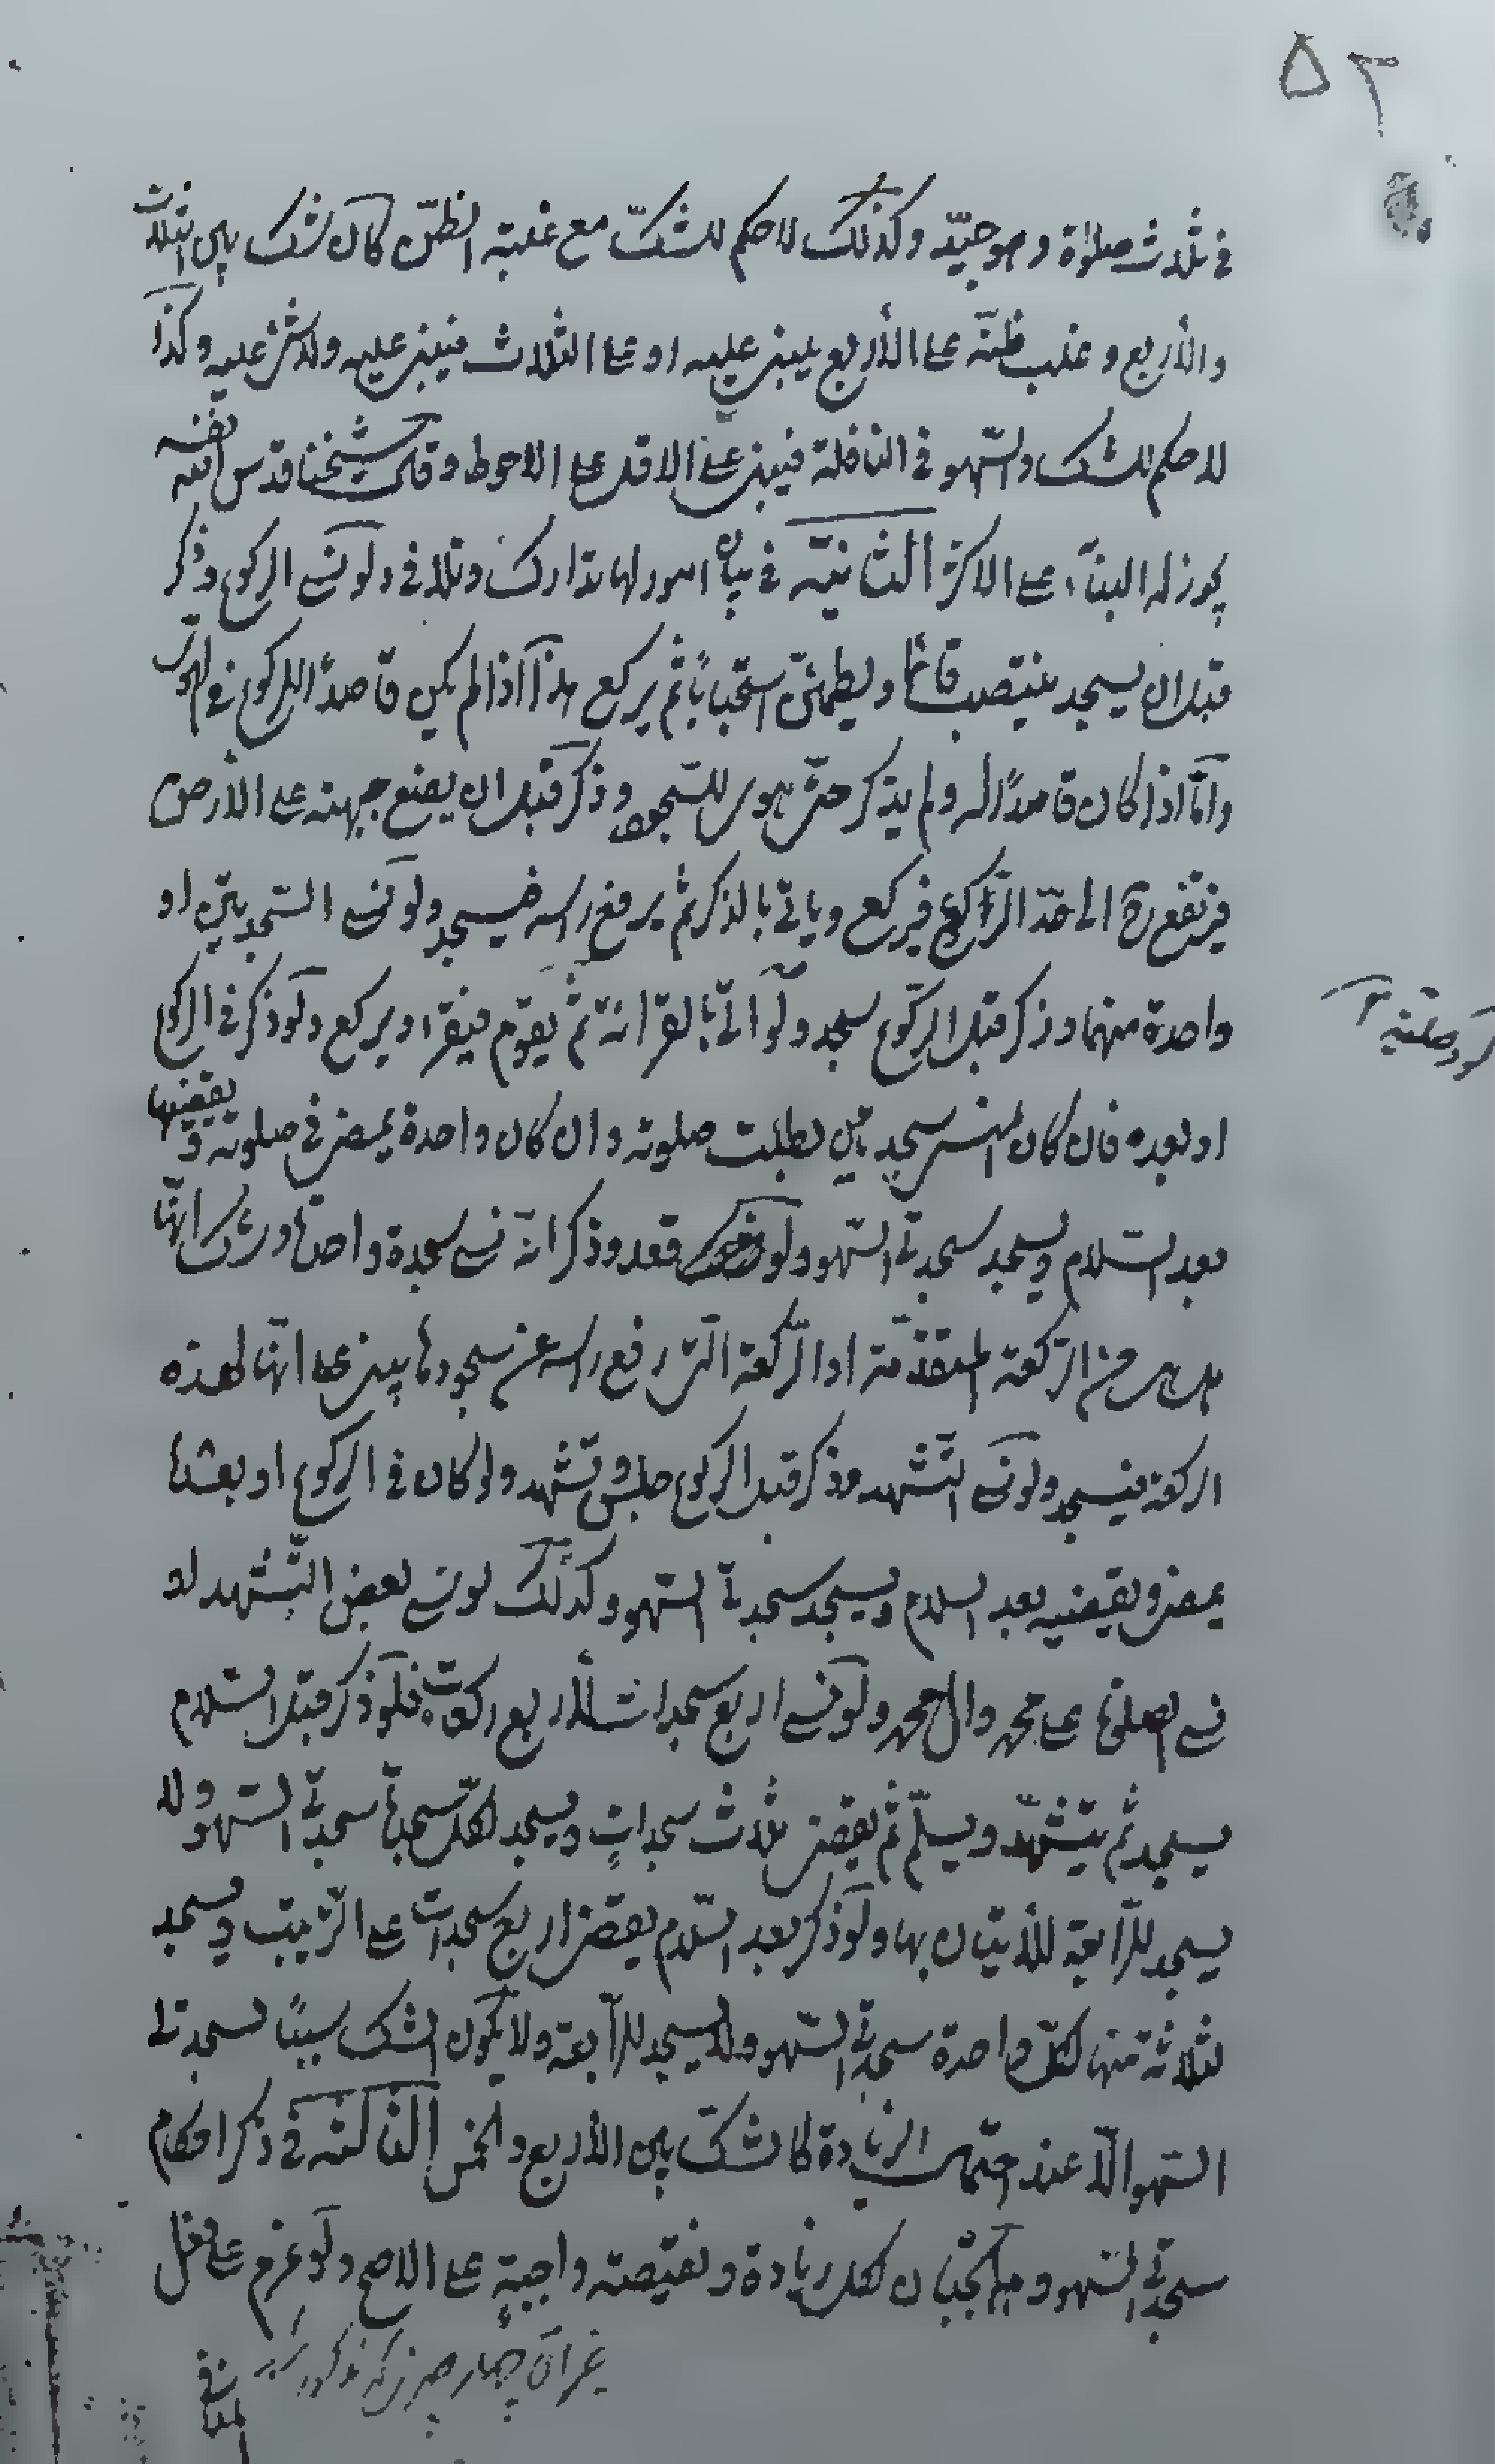 ٥٢
في ثلاث صلوة وهو جيّد وكذلك لا حكم للشكّ مع غلبة الظنّ كان شك بين الثلاث
والأربع وغلب ظنّه على الأربع يبنى عليه او على الثلاث فيبنى عليه ولا شئ عليه وكذا
لا حكم للشك والسّهو في النافلة فيبنى على الاقل على الاحوط وقال شيخنا قدس الله نفسه
يجوز له البنآء على الاكثر الثانية في بيان امور لها تدارك وتلافى ولو نسى الركوع وذكر
قبل ان يسجد ينتصب قائما ويطمئنّ استحبابًا ثم يركع هذا اذا لم يكن قاصدًا للركوع في الهوىّ
وامّا اذا كان قاصدًا له ولم يذكر حتّى هوى للسّجود وذكر قبل ان يضع جبهته على الأرض
فيرتفع ح الى حدّ الرّاكع فيركع وياتى بالذكر ثم يرفع راسه فيسجد ولو نسى السّجدتين او
واحدة منهما وذكر قبل الركوع سجد ولو اتى بالقرائة ثم يقوم فيقرا ويركع ولو ذكر في الركوع
او بعده فان كان لمنسى سجدتين بطلت صلوته وان كان واحدة يمضى في صلوته ويقضيها
بعد السّلام ويسجد سجدتى السّهو ولو قعد وذكر انّه نسى سجدة واحدة وشك انّها
هل هى من الرّكعة المتقدّمة او الرّكعة التى رفع راسه عن سجودها يبنى على انّها لهذه
الركعة فيسجد ولو نسى التّشهد وذكر قبل الركوع جلس وتشّهد ولو كان في الركوع او بعده
يمضى ويقضيه بعد السلام ويسجد سجدتى السّهو وكذلك لو نسى بعض التّشهد لو
نسى الصلوة على محمد وال محمد ولو نسى اربع سجدات لأربع ركعات فلو ذكر قبل السّلام
يسجد ثم يتشّهد ويسلّم ثم يقضى ثلاث سجدات ويسجد لكلّ سجدة سجدتى السّهو ولا
يسجد للرّابعة للأتيان بها ولو ذكر بعد السّلام يقضى اربع سجدات على التّرتيب ويسجد
لثلاثة منها لكلّ واحدة سجدتى السّهو ولا يسجد للرّابعة ولا يكون الشك سببًا لسجدتى
السّهو الّا عند احتمال الزيادة كالشكّ بين الأربع والخمس الثالثة في ذكر احكام
سجدتى السّهو وهما تجبان لكل زيادة ونقيصة واجبة على الاصح ولو عزم على فعل
غير ان چهار چيز كه مذكور
المنافى